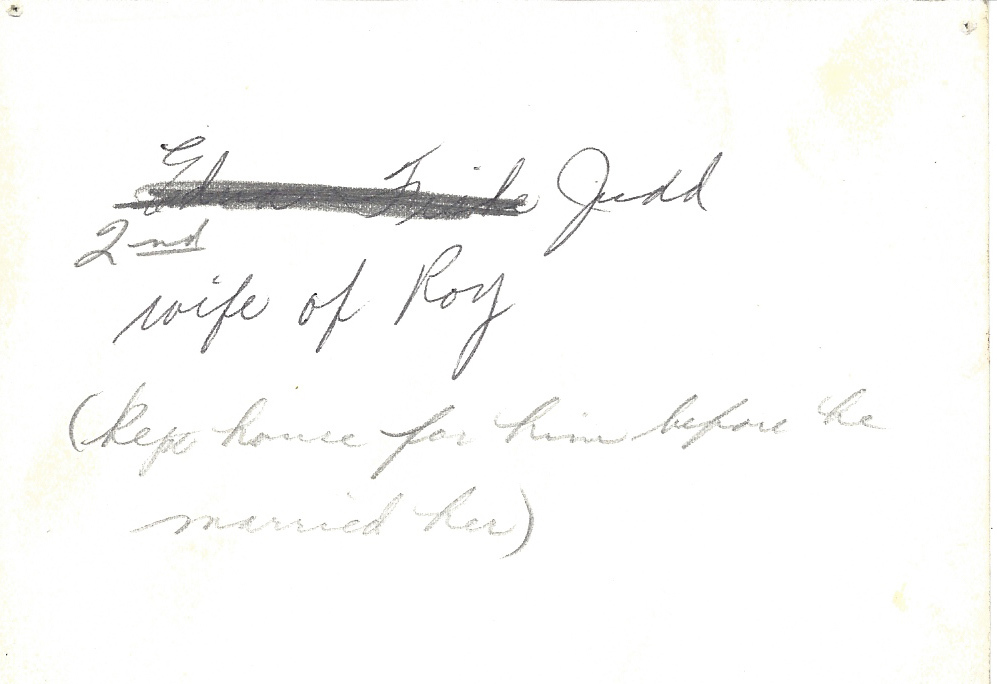 Edna Judd
2nd
wife of Roy
(Kept house for him before he
married her)